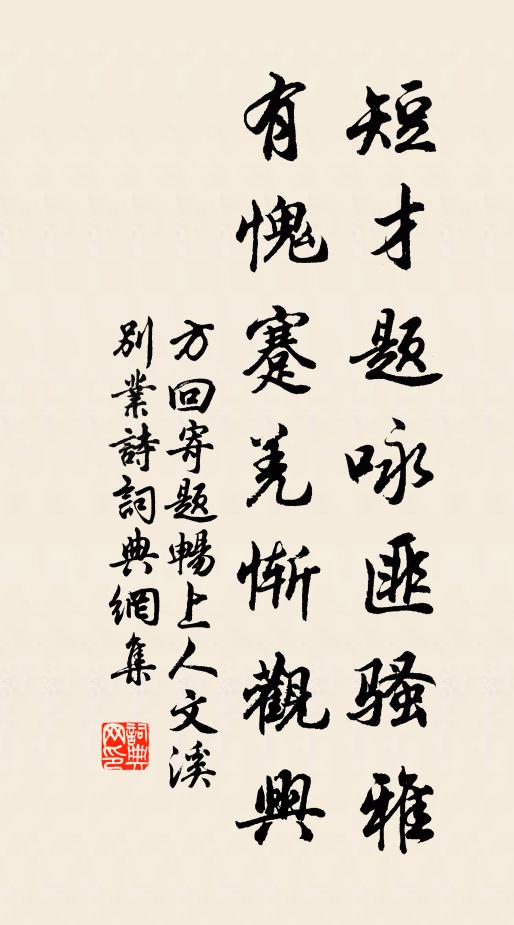 短才題咏匪騷雅
有愧蹇羌慚觀興
方回寄題暢上人文溪
別業詩詞典網集
詞典网印